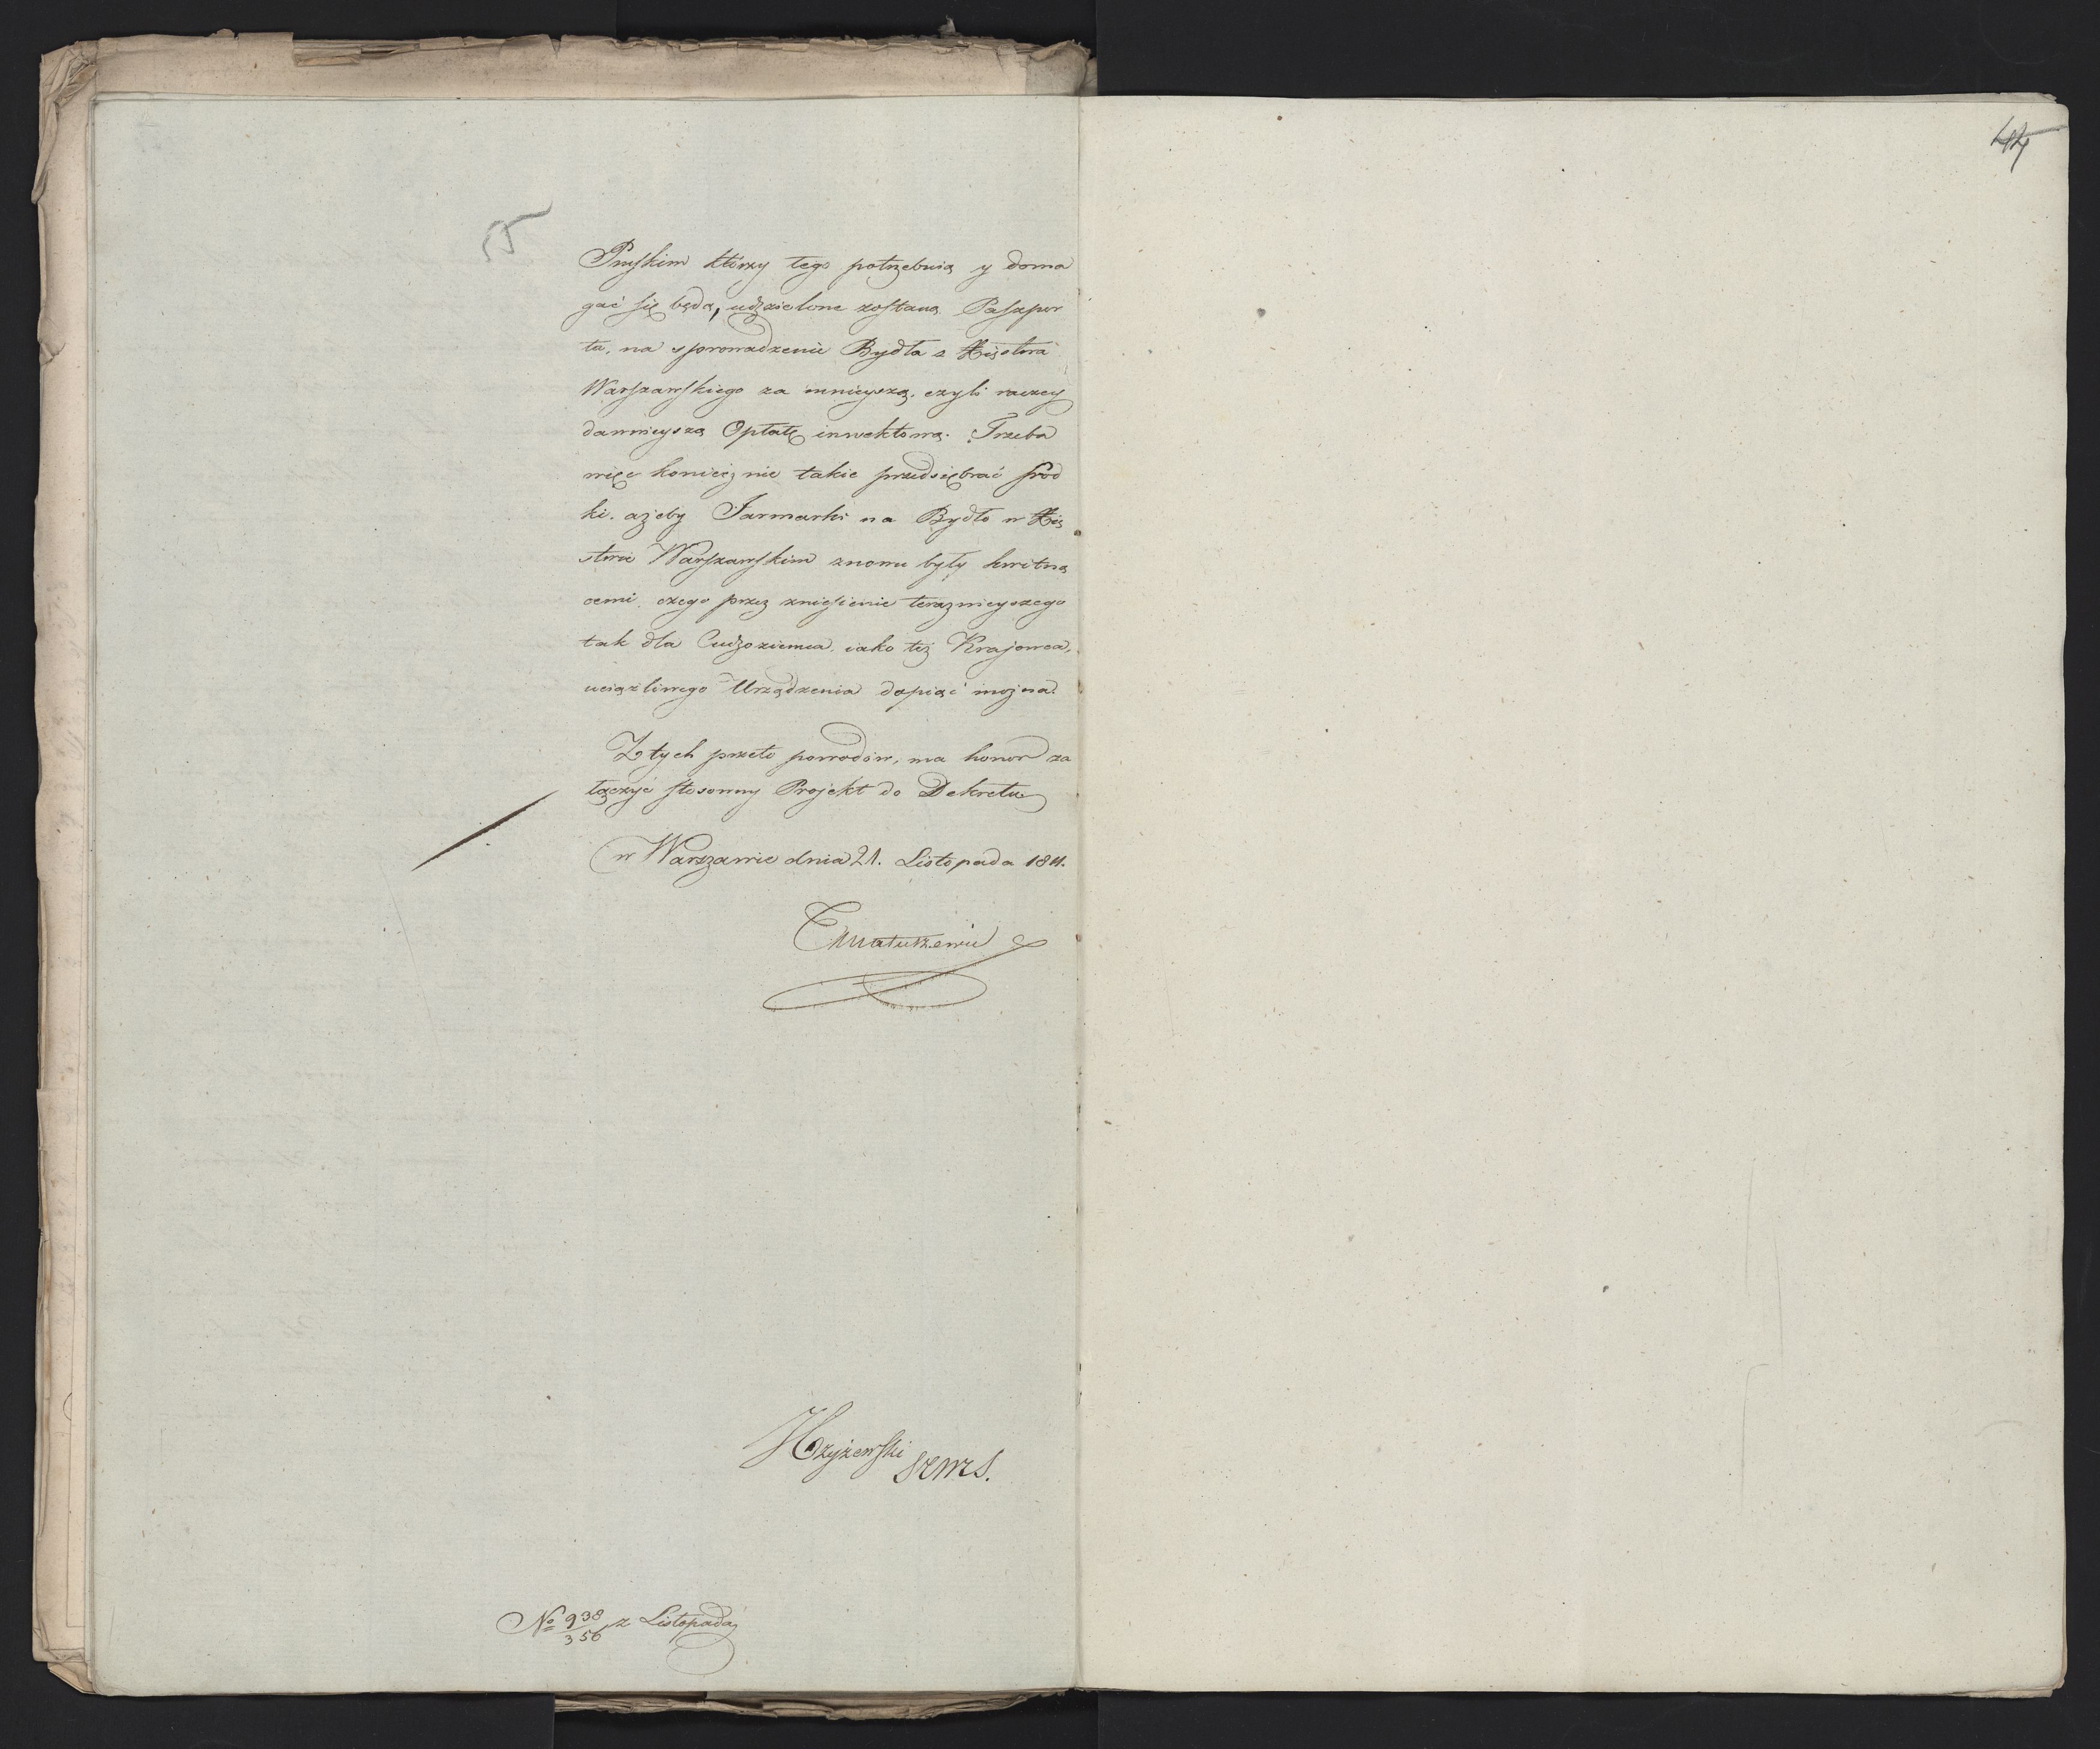 44
55
Pruskim którzy tego potrzebuią y doma
gać się będą, udzielone zostaną Paszpor
ta, na sprowadzenie Bydła z Xięstwa
Warszawskiego za mnieyszą, czyli raczey
dawnieyszą Opłatę inwektową. Trzeba
więc koniecznie takie przedsięбrać środ
ki, ażeby Jarmarki na Bydło w Xię
stwie Warszawskim znowu były kwitną
cemi, czego przez zniesienie teraznieyszego
tak dla Cudzoziemca, iako też Krajowca,
uciążliwego Urządzenia dopiąć można.
Z tych przeto powodów, ma honor za
łączyć stosowny Projekt do Dekretu
w Warszawie dnia 21. Listopada 1811.
TMatuszewic
Krzyżewski
No 938/356 z Listopada